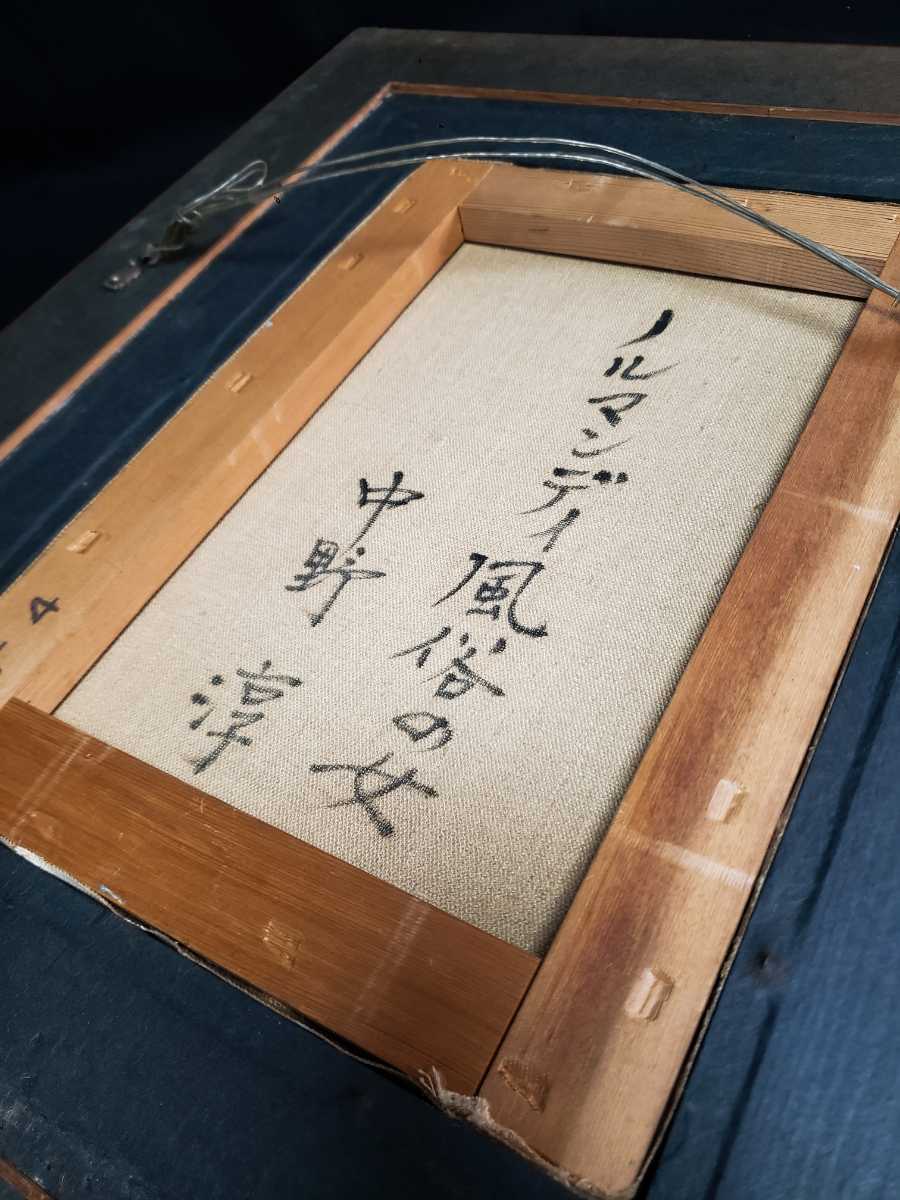 ノルマンディ風俗の女
中野淳
4